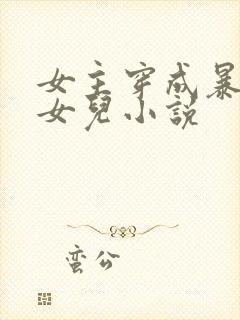 女主穿成暴
女兒小説
蛮公